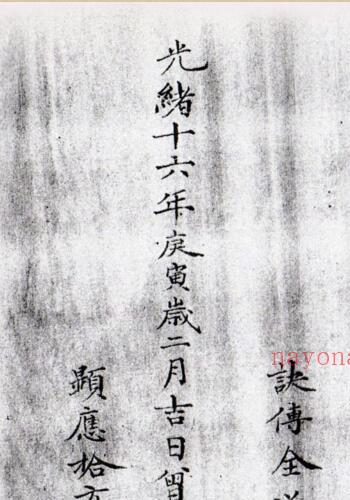 訣傳全
光緒十六年庚寅歲二月吉日
顯應拾方
nayona